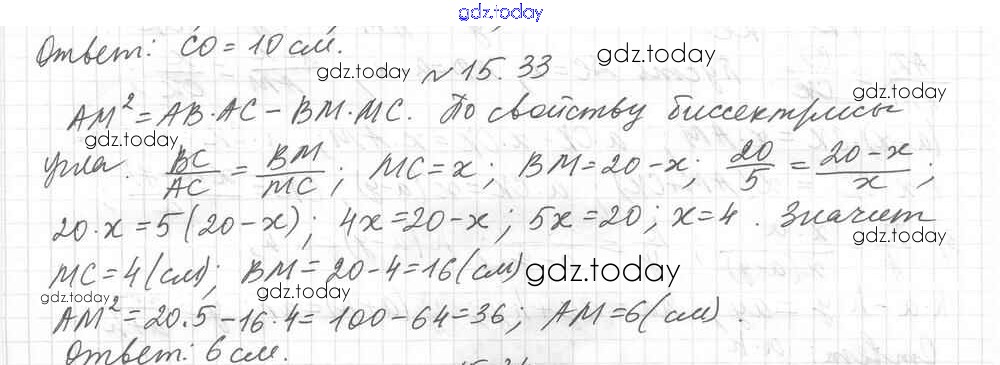 gdz.today
Ответ: CO = 10 см.
gdz.today gdz.today
№ 15.33
AM² = AB·AC – BM·MC. По свойству биссектрисы
gdz.today gdz.today
угла. BC/AC = BM/MC; MC = x; BM = 20 – x; 20/5 = (20 – x)/x;
gdz.today gdz.today
20·x = 5(20 – x); 4x = 20 – x; 5x = 20; x = 4. Значит
gdz.today
MC = 4 (см); BM = 20 – 4 = 16 (см) gdz.today
gdz.today gdz.today
AM² = 20·5 – 16·4 = 100 – 64 = 36; AM = 6 (см).
Ответ: 6 см.